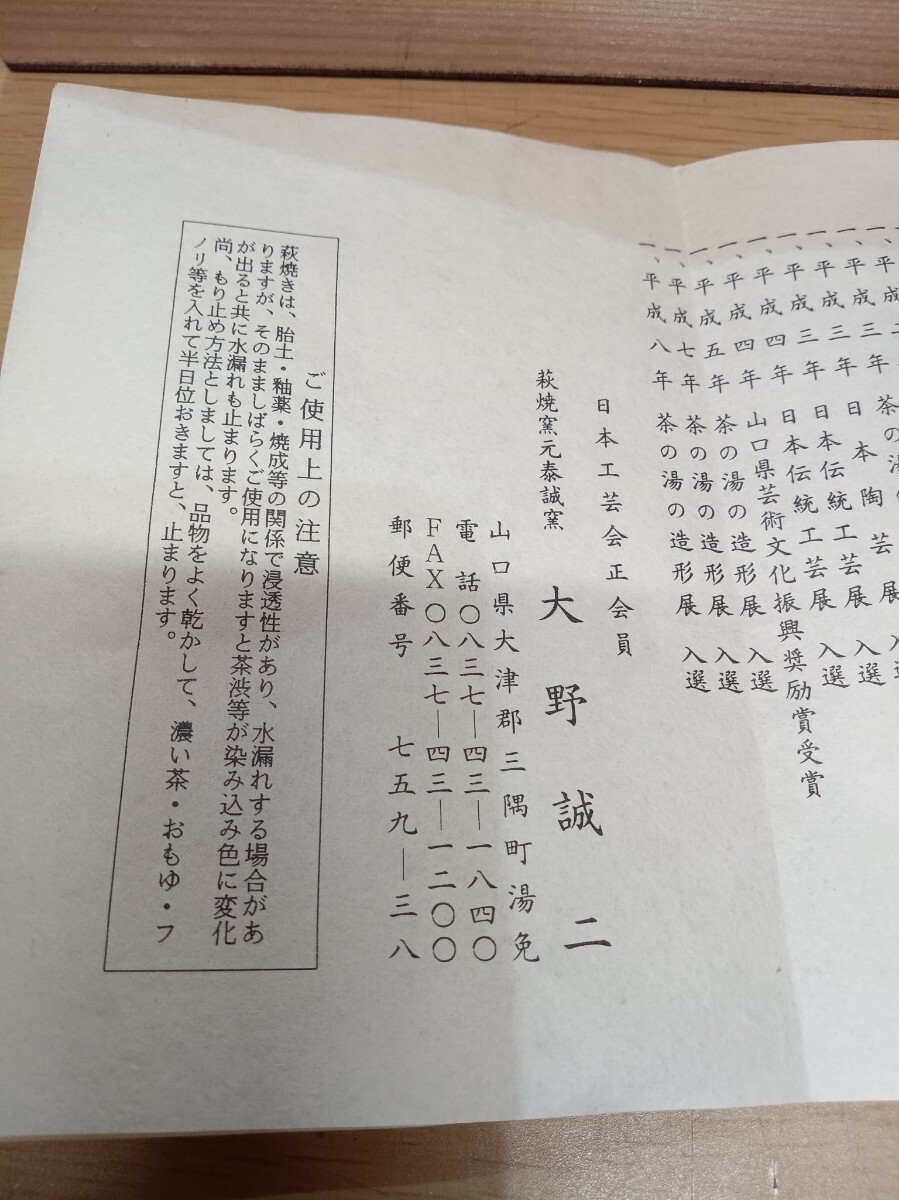 一、平成三年 日本陶芸展 入選
一、平成三年 日本伝統工芸展 入選
一、平成三年 日本伝統工芸展 入選
一、平成四年 山口県芸術文化振興奨励賞受賞
一、平成四年 茶の湯の造形展 入選
一、平成五年 茶の湯の造形展 入選
一、平成七年 茶の湯の造形展 入選
一、平成八年 茶の湯の造形展 入選
日本工芸会正会員
萩焼窯元泰誠窯 大野誠二
山口県大津郡三隅町湯免
電話〇八三七―四三―一八四〇
FAX〇八三七―四三―一二〇〇
郵便番号 七五九―三八
ご使用上の注意
萩焼きは、胎土・釉薬・焼成等の関係で浸透性があり、水漏れする場合があ
りますが、そのまましばらくご使用になりますと茶渋等が染み込み色に変化
が出ると共に水漏れも止まります。
尚、もり止め方法としましては、品物をよく乾かして、濃い茶・おもゆ・フ
ノリ等を入れて半日位おきますと、止まります。